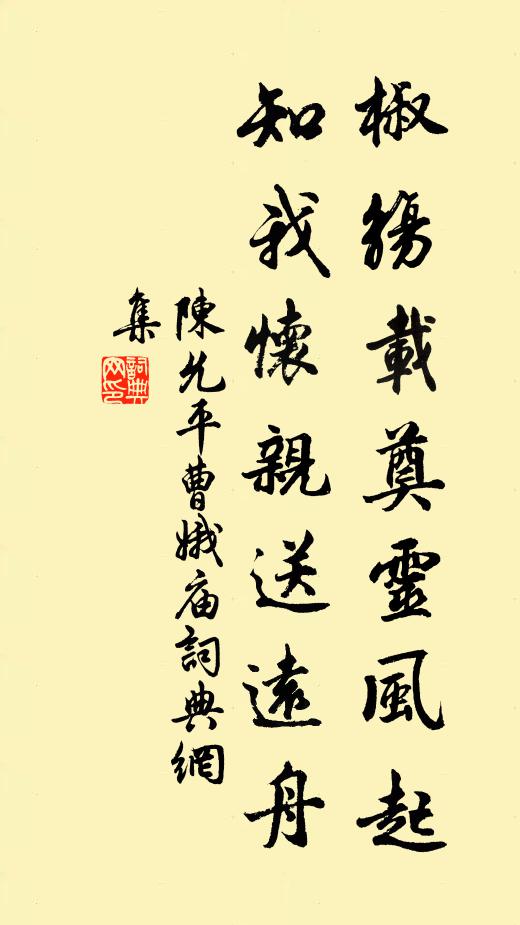 椒觴載奠靈風起
知我懷親送遠舟
陳允平曹娥庙詞典網
集
詞典网印